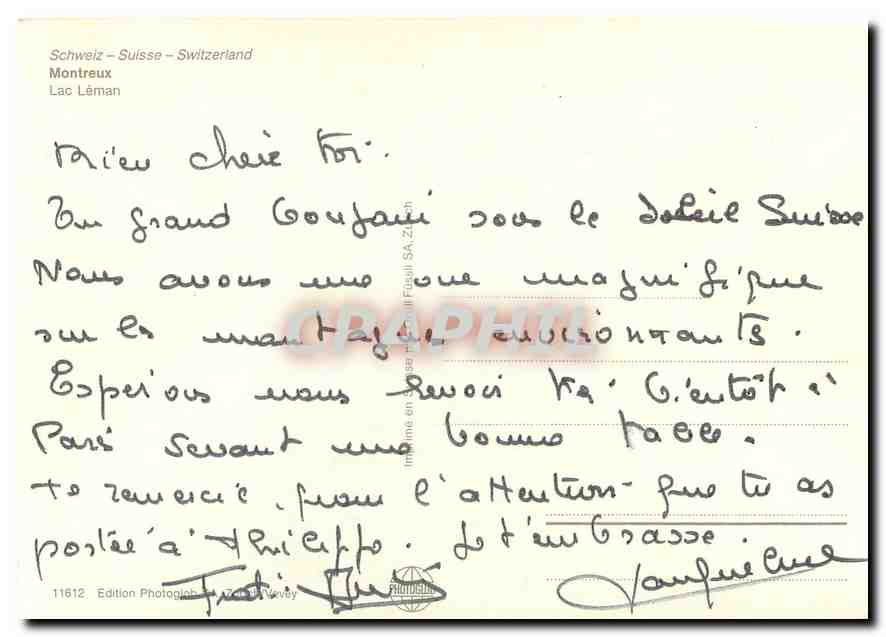 Schweiz – Suisse – Switzerland
Montreux
Lac Léman
chère toi.
Un grand bonjour sous le Soleil Suisse
Nous avons une vue magnifique
sur les montagnes environnants.
Espérons nous revoir très bientôt à
Paris devant une bonne table.
te remercie, pour l'attention que tu as
portée à Philippe. Je t'embrasse.
Jacqueline
11612 Edition Photoglob SA, Zürich/Vevey
PHOTOGLOB
Imprimé en Suisse Orell Füssli SA, Zürich
CPAPHIL